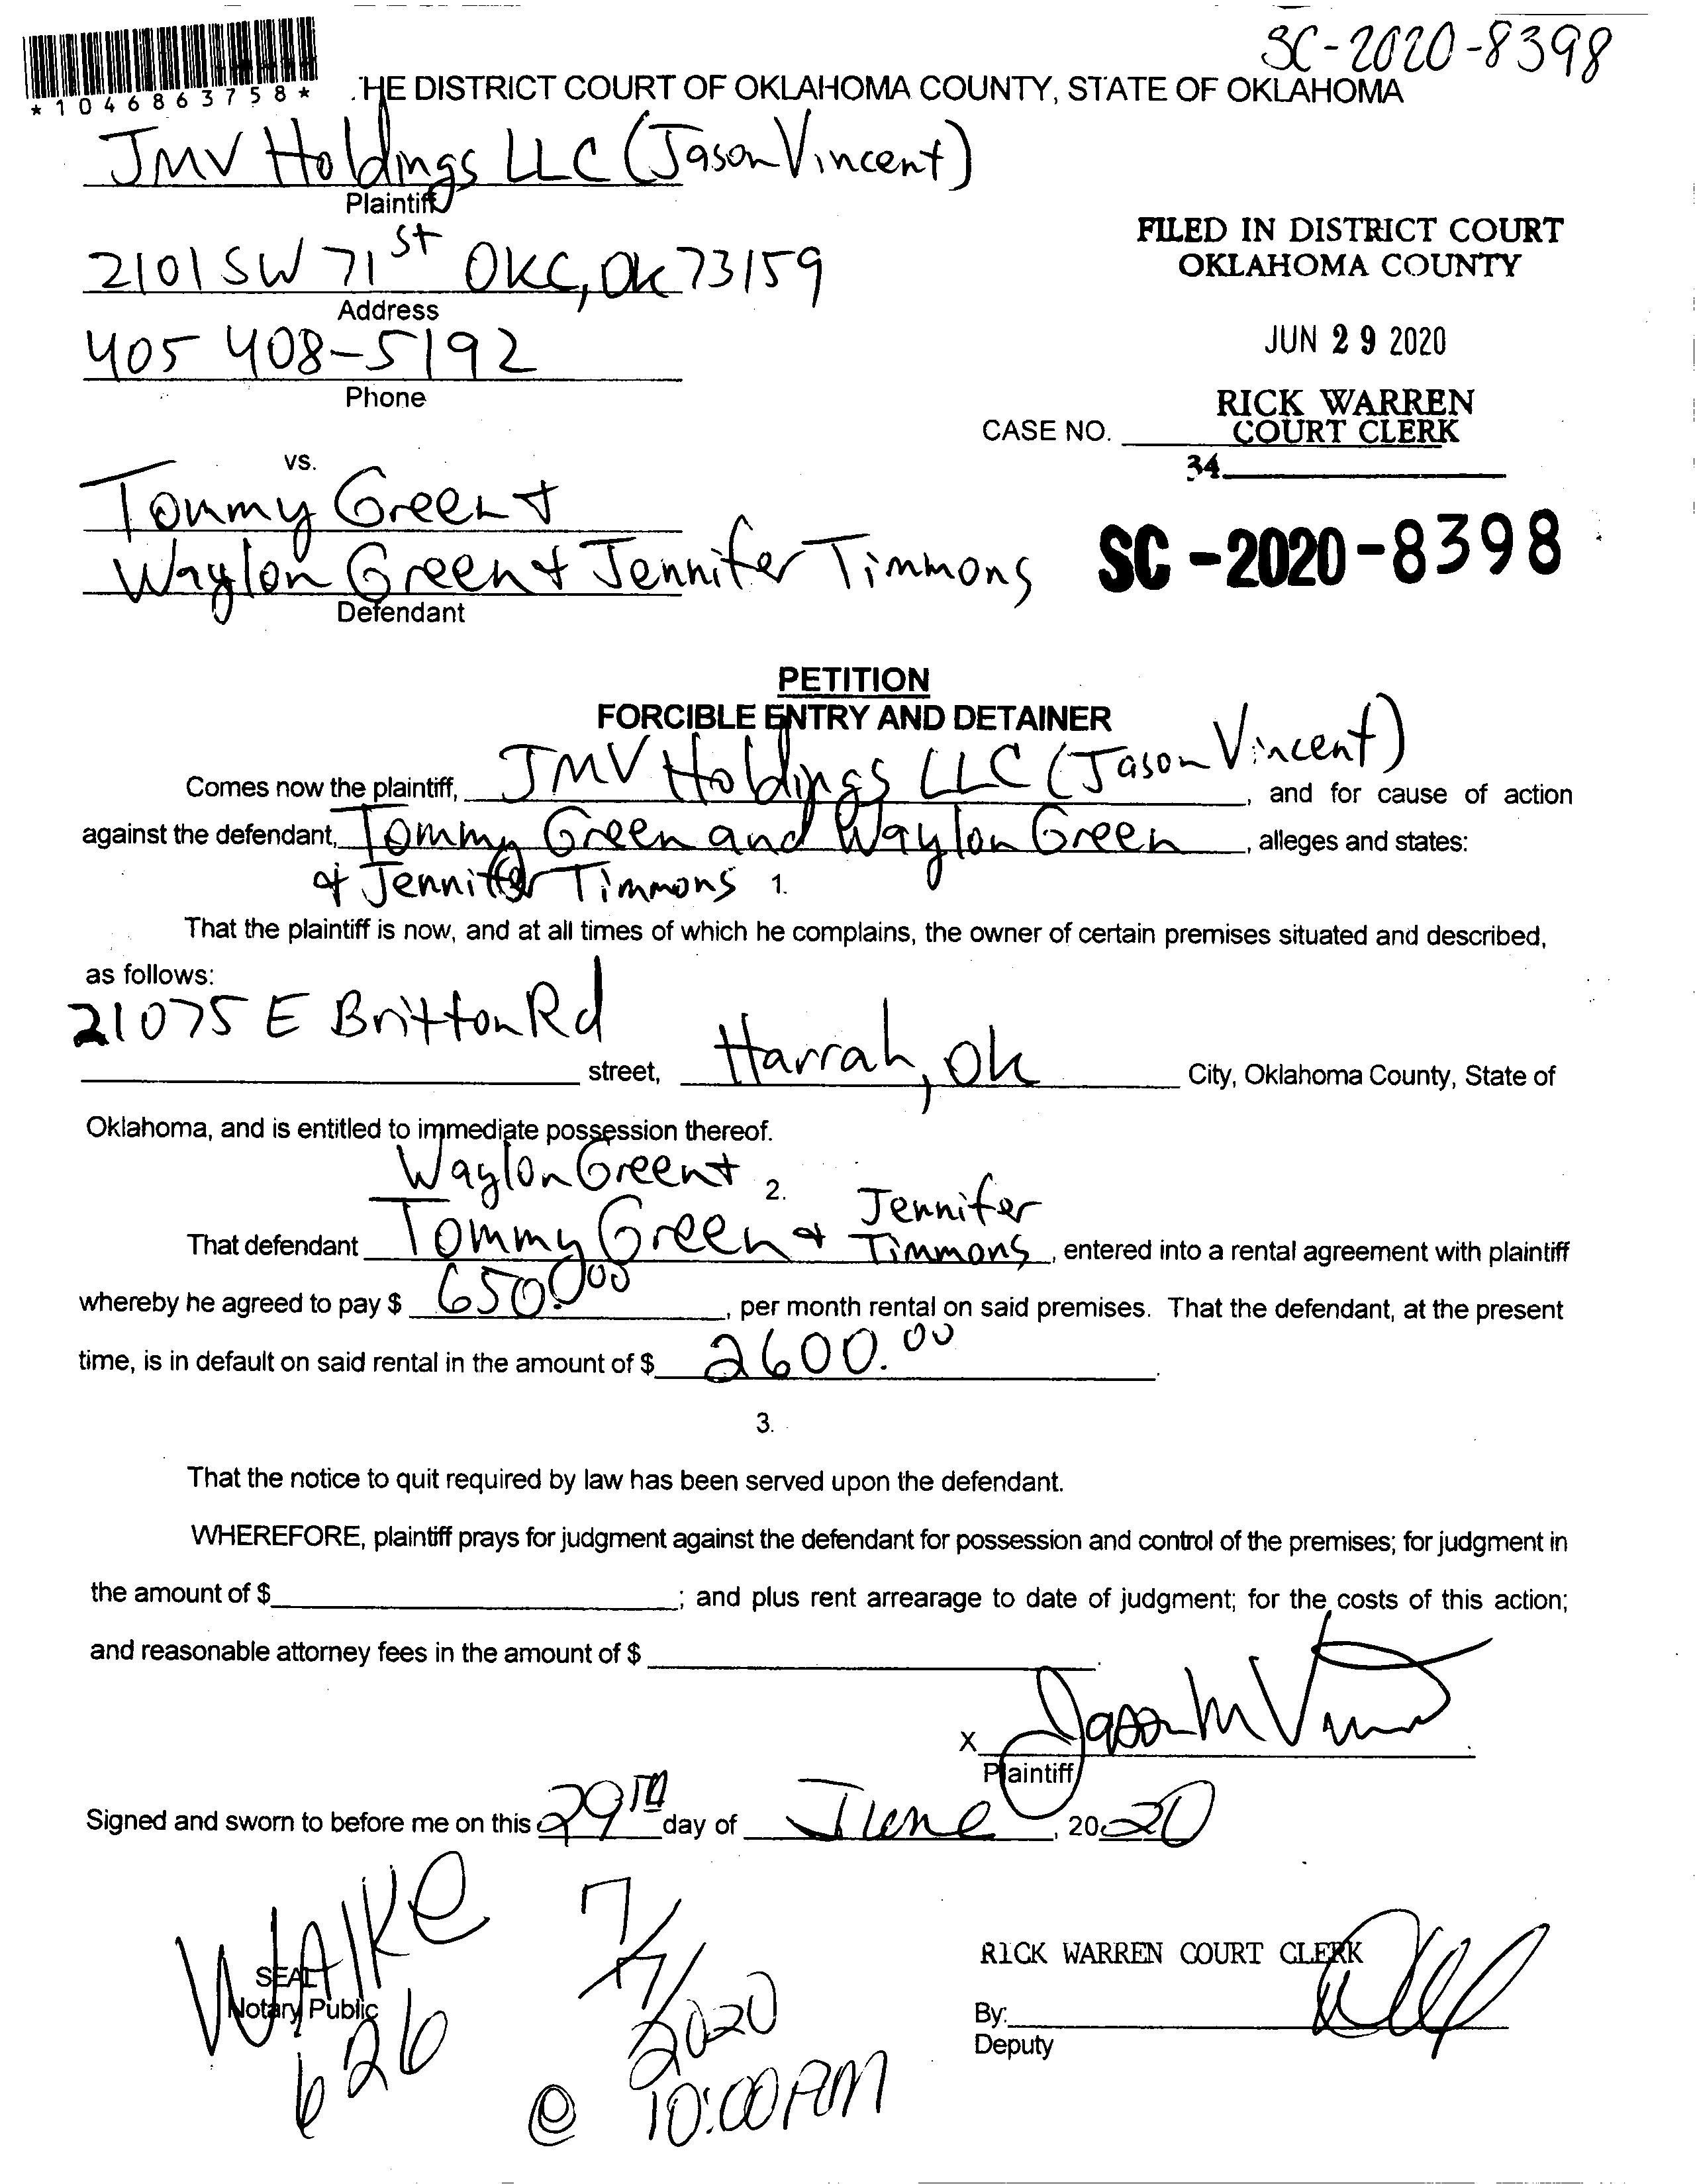 SC-2020-8398
*1046863758*
.HE DISTRICT COURT OF OKLAHOMA COUNTY, STATE OF OKLAHOMA
JMV Holdings LLC (Jason Vincent)
Plaintiff
2101 SW 71st OKC, Ok 73159
Address
FILED IN DISTRICT COURT
OKLAHOMA COUNTY
405 408-5192
Phone
JUN 29 2020
RICK WARREN
COURT CLERK
CASE NO.
34
vs.
Tommy Green +
Waylon Green + Jennifer Timmons
Defendant
SC-2020-8398
PETITION
FORCIBLE ENTRY AND DETAINER
Comes now the plaintiff, JMV Holdings LLC (Jason Vincent), and for cause of action
against the defendant, Tommy Green and Waylon Green, alleges and states:
+ Jennifer Timmons 1.
That the plaintiff is now, and at all times of which he complains, the owner of certain premises situated and described,
as follows:
21075 E Britton Rd street, Harrah, Ok City, Oklahoma County, State of
Oklahoma, and is entitled to immediate possession thereof.
Waylon Green +
2.
That defendant Tommy Green + Jennifer Timmons, entered into a rental agreement with plaintiff
whereby he agreed to pay $ 650.00, per month rental on said premises. That the defendant, at the present
time, is in default on said rental in the amount of $ 2600.00.
3.
That the notice to quit required by law has been served upon the defendant.
WHEREFORE, plaintiff prays for judgment against the defendant for possession and control of the premises; for judgment in
the amount of $ ; and plus rent arrearage to date of judgment; for the costs of this action;
and reasonable attorney fees in the amount of $ .
X Jason M Vincent
Plaintiff
Signed and sworn to before me on this 29TH day of June, 2020
WAlKe
SEAL
Notary Public
626
7/7/2020
@ 10:00 AM
RICK WARREN COURT CLERK
By:
Deputy